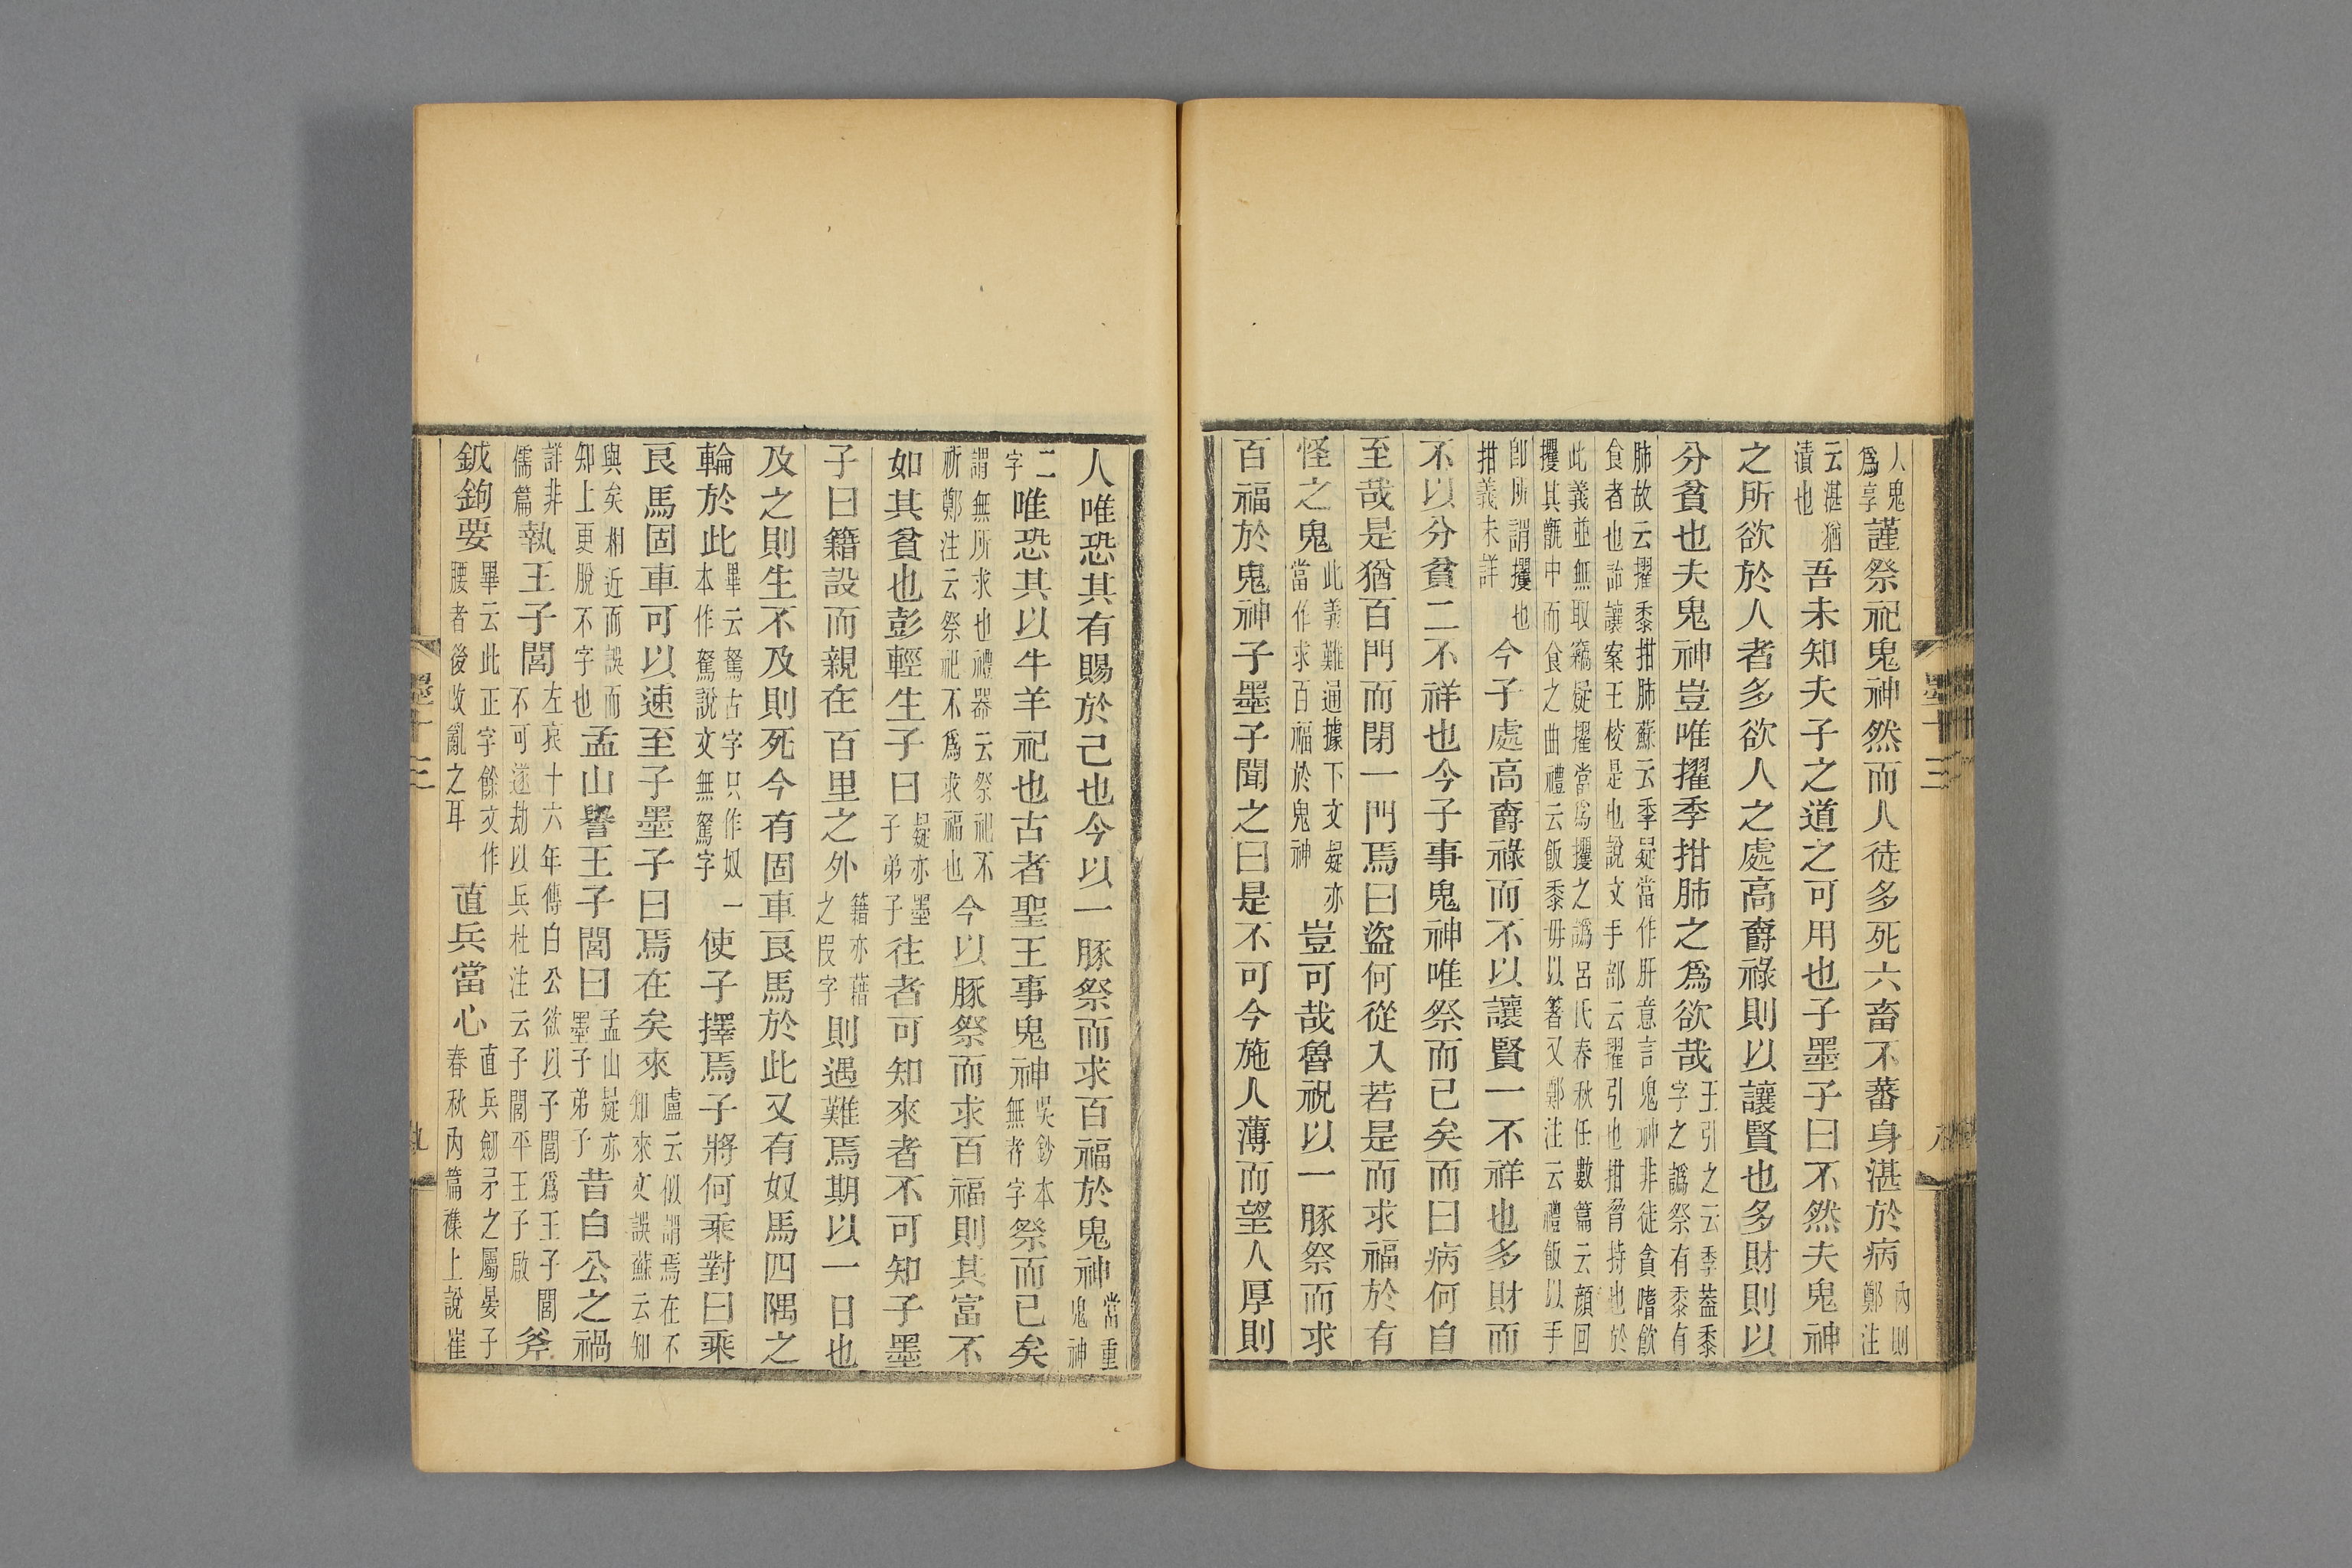 人鬼爲享謹祭祀鬼神然而人徒多死六畜不蕃身湛於病內則鄭注
云湛猶漬也吾未知夫子之道之可用也子墨子曰不然夫鬼神
之所欲於人者多欲人之處高爵祿則以讓賢也多財則以
分貧也夫鬼神豈唯擢季拑肺之爲欲哉王引之云季葢黍字之譌祭有黍有
肺故云擢黍拑肺蘇云季疑當作肝意言鬼神非徒貪嗜飮食者也詒讓案王校是也說文手部云擢引也拑脅持也於
此義並無取竊疑擢當爲攫之譌呂氏春秋任數篇云顏回攫其甑中而食之曲禮云飯黍毋以箸又鄭注云禮飯以手
卽所謂攫也拑義未詳今子處高爵祿而不以讓賢一不祥也多財而
不以分貧二不祥也今子事鬼神唯祭而已矣而曰病何自
至哉是猶百門而閉一門焉曰盜何從入若是而求福於有
怪之鬼此義難通據下文疑亦當作求百福於鬼神豈可哉魯祝以一豚祭而求
百福於鬼神子墨子聞之曰是不可今施人薄而望人厚則
人唯恐其有賜於己也今以一豚祭而求百福於鬼神當重鬼神
二字唯恐其以牛羊祀也古者聖王事鬼神吳鈔本無者字祭而已矣
謂無所求也禮器云祭祀不祈鄭注云祭祀不爲求福也今以豚祭而求百福則其富不
如其貧也彭輕生子曰疑亦墨子弟子往者可知來者不可知子墨
子曰籍設而親在百里之外籍亦藉之叚字則遇難焉期以一日也
及之則生不及則死今有固車良馬於此又有奴馬四隅之
輪於此畢云駑古字只作奴一本作駑說文無駑字使子擇焉子將何乘對曰乘
良馬固車可以速至子墨子曰焉在矣來盧云似謂焉在不知來文誤蘇云知
與矣相近而誤而知上更脫不字也孟山譽王子閭曰孟山疑亦墨子弟子昔白公之禍
詳非儒篇執王子閭左哀十六年傳白公欲以子閭爲王子閭不可遂劫以兵杜注云子閭平王子啟斧
鉞鉤要畢云此正字餘文作腰者後改亂之耳直兵當心直兵劒矛之屬晏子春秋內篇襍上說崔
墨十三